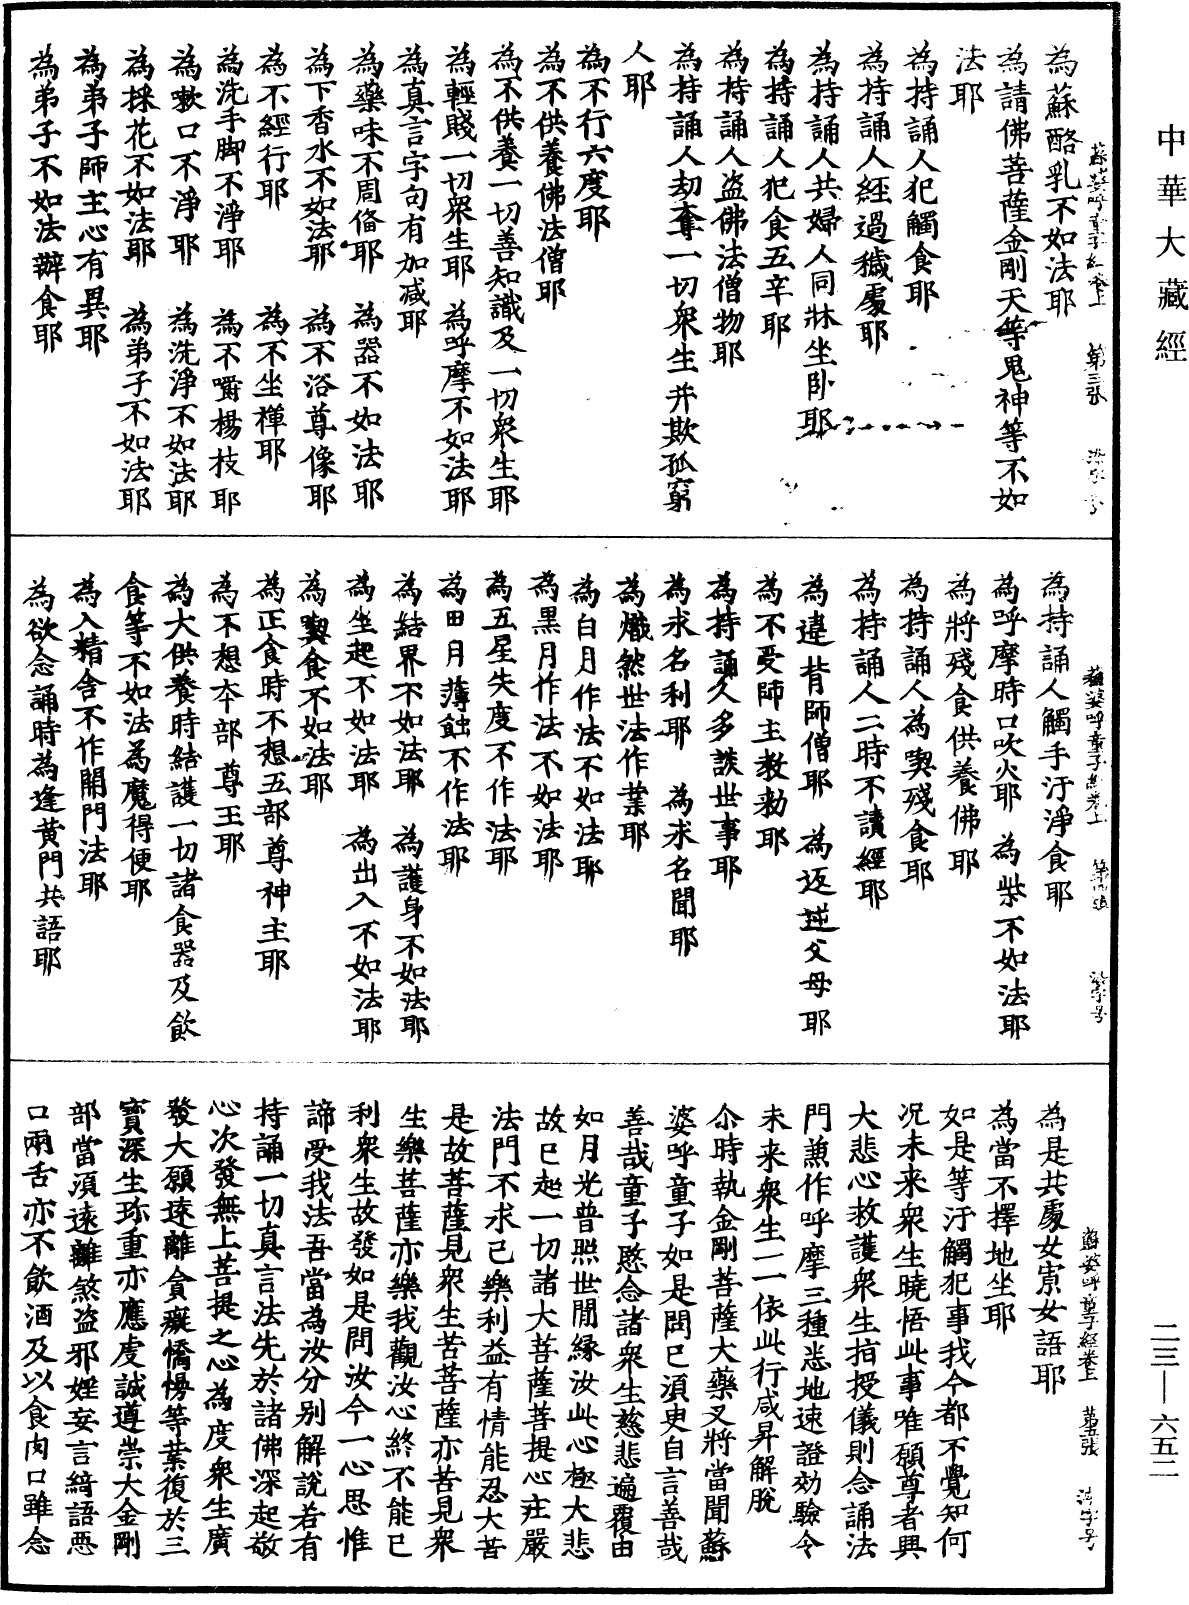 中華大藏經
蘇婆呼童子經卷上 第三張
為蘇酪乳不如法耶
為請佛菩薩金剛天等鬼神等不如
法耶
為持誦人犯觸食耶
為持誦人經過穢處耶
為持誦人共婦人同牀坐卧耶
為持誦人犯食五辛耶
為持誦人盗佛法僧物耶
為持誦人劫奪一切衆生并欺孤窮
人耶
為不行六度耶
為不供養佛法僧耶
為不供養一切善知識及一切衆生耶
為輕賤一切衆生耶 為呼摩不如法耶
為真言字句有加减耶
為藥味不周俻耶 為器不如法耶
為下香水不如法耶 為不浴尊像耶
為不經行耶 為不坐禪耶
為洗手脚不淨耶 為不嚼楊枝耶
為嗽口不淨耶 為洗淨不如法耶
為採花不如法耶 為弟子不如法耶
為弟子師主心有異耶
為弟子不如法辦食耶
蘇婆呼童子經卷上 第四張
為持誦人觸手汙淨食耶
為呼摩時口吹火耶 為柴不如法耶
為將殘食供養佛耶
為持誦人為喫殘食耶
為持誦人二時不讀經耶
為違背師僧耶 為返逆父母耶
為不受師主教勑耶
為持誦久多談世事耶
為求名利耶 為求名聞耶
為熾然世法作業耶
為白月作法不如法耶
為黒月作法不如法耶
為五星失度不作法耶
為田月薄蝕不作法耶
為結界不如法耶 為護身不如法耶
為坐起不如法耶 為出入不如法耶
為喫食不如法耶
為正食時不想五部尊神主耶
為不想本部尊王耶
為大供養時結護一切諸食器及飲
食等不如法為魔得便耶
為入精舍不作開門法耶
為欲念誦時為逢黄門共語耶
蘇婆呼童子經卷上 第五張
為是共處女寡女語耶
為當不擇地坐耶
如是等汙觸犯事我今都不覺知何
况未来衆生曉悟此事唯願尊者興
大悲心救護衆生指授儀則念誦法
門兼作呼摩三種悉地速證効驗令
未来衆生一一依此行咸昇解脫
尒時執金剛菩薩大藥叉將當聞蘇
婆呼童子如是問已須臾自言善哉
善哉童子愍念諸衆生慈悲遍覆由
如月光普照世間縁汝此心極大悲
故已起一切諸大菩薩菩提心莊嚴
法門不求己樂利益有情能忍大苦
是故菩薩見衆生苦菩薩亦苦見衆
生樂菩薩亦樂我觀汝心終不能已
利衆生故發如是問汝今一心思惟
諦受我法吾當為汝分别解説若有
持誦一切真言法先於諸佛深起敬
心次發無上菩提之心為度衆生廣
發大願逺離貪癡憍慢等業復於三
寶深生珎重亦應虔誠遵崇大金剛
部當湏逺離煞盗邪婬妄言綺語惡
口兩舌亦不飲酒及以食肉口雖念
二三—六五二